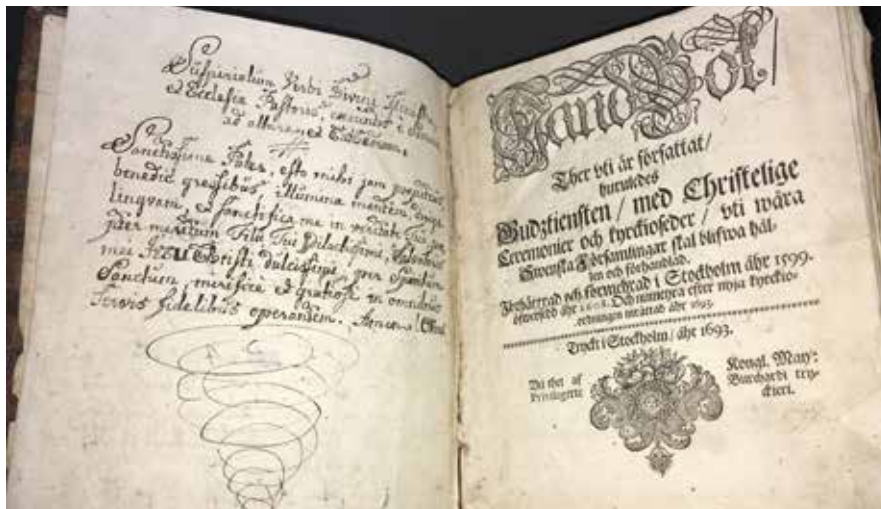 Suspirium Verbi Divini
et Ecclesiæ Pastoris,
ad altare et
Sanctissime Pater, esto mihi jam propitius,
benedic gressibus, illumena mentem,
lingvam, et sanctifica me in veritate
per meritum Filii Tui Dilectissimi, Salvatoris
mei JESU Christi dulcissimi, per Spiritum
Sanctum, mirifice et gratiose in omnibus
servis fidelibus operantem. Amen!
HandBok/
Ther vti är författat/
huruledes
Gudztiensten/ med Christelige
Ceremonier och kyrckioseder/ vti wåra
Swenska Församlingar skal blifwa hål-
len och förhandlad.
Förbättrad och förmehrad i Stockholm åhr 1599.
öfwersedd åhr 1608. Och numehra efter nyja kyrckio-
ordningen inrättad åhr 1693.
Tryckt i Stockholm/ åhr 1693.
Vti thet af Kongl. May:
Privilegerte Burchardi try-
ckieri.